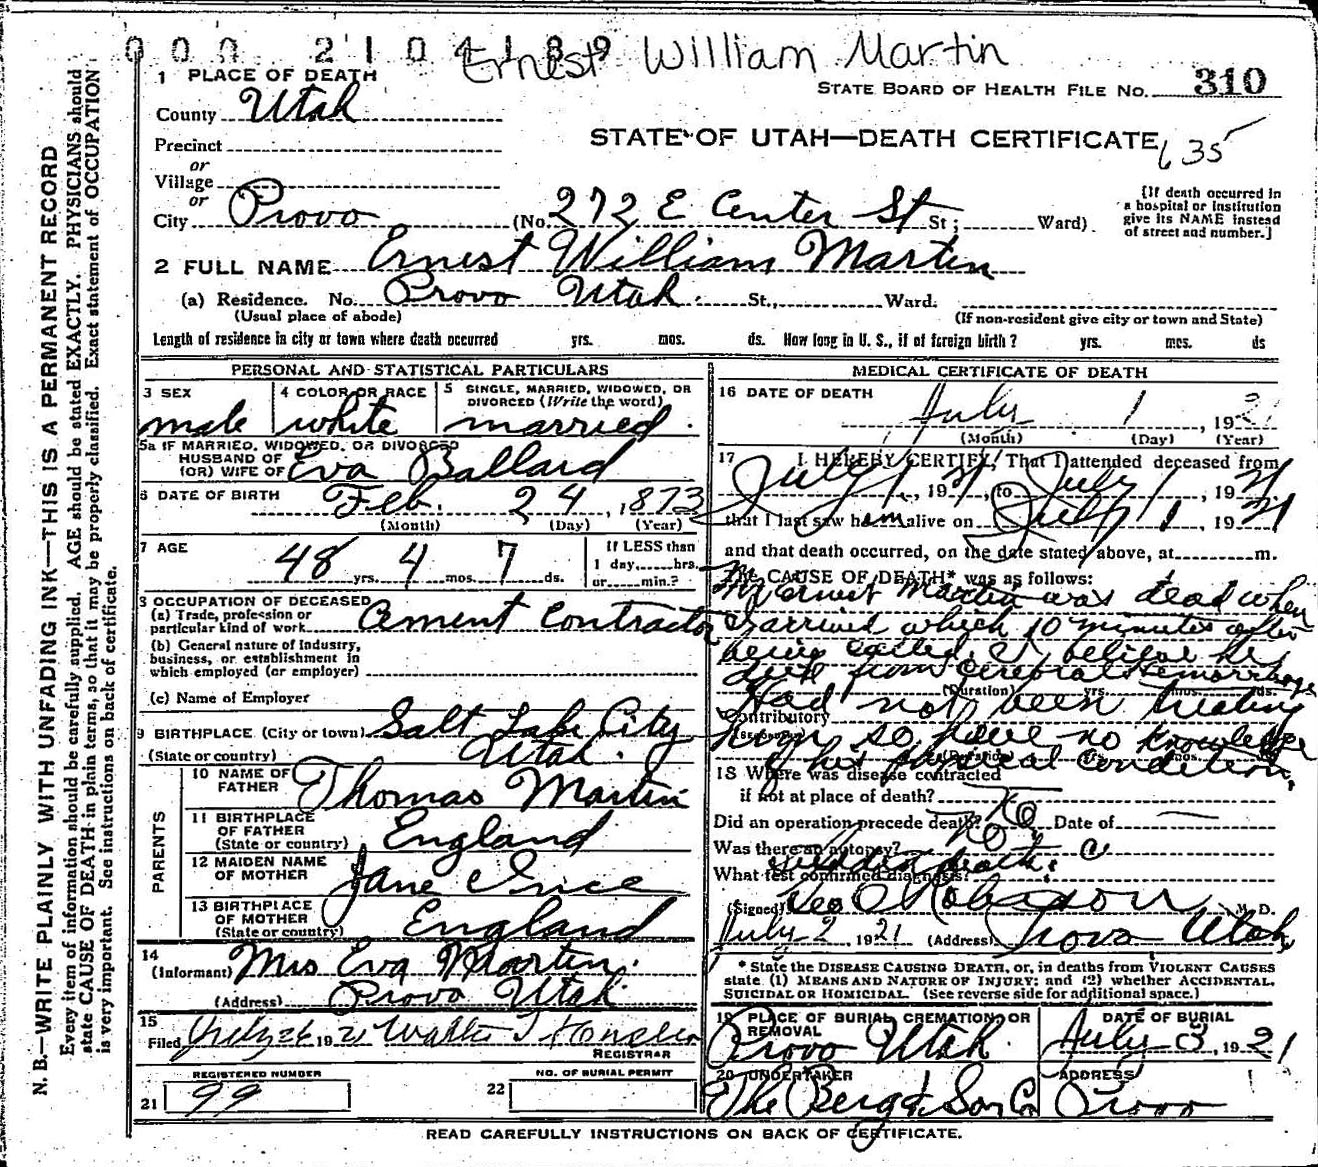 0 0 0 2 1 0 4 1 8 9
Ernest William Martin
1 PLACE OF DEATH
STATE BOARD OF HEALTH FILE NO. 310
County Utah
STATE OF UTAH—DEATH CERTIFICATE
635
Precinct
or
Village
or
City Provo (No. 272 E Center St St; Ward)
[If death occurred in
a hospital or institution
give its NAME instead
of street and number.]
2 FULL NAME Ernest William Martin
(a) Residence. No. Provo Utah. St., Ward.
(Usual place of abode)
(If non-resident give city or town and State)
Length of residence in city or town where death occurred yrs. mos. ds. How long in U. S., if of foreign birth? yrs. mos. ds
PERSONAL AND STATISTICAL PARTICULARS
3 SEX
male
4 COLOR OR RACE
white
5 SINGLE, MARRIED, WIDOWED, OR
DIVORCED (Write the word)
married.
5a IF MARRIED, WIDOWED, OR DIVORCED
HUSBAND OF
(OR) WIFE OF Eva Ballard
6 DATE OF BIRTH Feb. 24, 1873
(Month) (Day) (Year)
7 AGE
48 yrs. 4 mos. 7 ds.
If LESS than
1 day, hrs.
or min.?
8 OCCUPATION OF DECEASED
(a) Trade, profession or
particular kind of work Cement Contractor
(b) General nature of Industry,
business, or establishment in
which employed (or employer)
(c) Name of Employer
9 BIRTHPLACE (City or town) Salt Lake City
(State or country) Utah.
PARENTS
10 NAME OF
FATHER Thomas Martin
11 BIRTHPLACE
OF FATHER
(State or country) England
12 MAIDEN NAME
OF MOTHER Jane Ince
13 BIRTHPLACE
OF MOTHER
(State or country) England
14
(Informant) Mrs Eva Martin.
(Address) Provo Utah
15
Filed July 26 1921 Walter T
REGISTRAR
REGISTERED NUMBER
21 99
NO. OF BURIAL PERMIT
22
MEDICAL CERTIFICATE OF DEATH
16 DATE OF DEATH
July 1, 1921
(Month) (Day) (Year)
17 I HEREBY CERTIFY, That I attended deceased from
July 1, 1921 to July 1, 1921
that I last saw him alive on July 1, 1921
and that death occurred, on the date stated above, at m.
The CAUSE OF DEATH* was as follows:
Mr Ernest Martin was dead when
I arrived which 10 minutes after
being called. I believe he
died from cerebral Hemorrhage
(Duration) yrs. mos. ds.
Had not been treating
Contributory
(Secondary)
him so have no knowledge
(Duration) yrs. mos. ds.
of his physical condition,
18 Where was disease contracted
if not at place of death?
Did an operation precede death? No Date of
Was there an autopsy? No
What test confirmed diagnosis? Sudden death.
(Signed) Geo E Robison M. D.
July 2, 1921 (Address) Provo Utah
* State the DISEASE CAUSING DEATH, or, in deaths from VIOLENT CAUSES
state (1) MEANS AND NATURE OF INJURY; and (2) whether ACCIDENTAL,
SUICIDAL OR HOMICIDAL. (See reverse side for additional space.)
19 PLACE OF BURIAL CREMATION, OR
REMOVAL
Provo Utah.
DATE OF BURIAL
July 3, 1921
20 UNDERTAKER
The Berg & Son Co
ADDRESS
Provo
READ CAREFULLY INSTRUCTIONS ON BACK OF CERTIFICATE.
N. B.—WRITE PLAINLY WITH UNFADING INK—THIS IS A PERMANENT RECORD
Every item of information should be carefully supplied. AGE should be stated EXACTLY. PHYSICIANS should
state CAUSE OF DEATH in plain terms, so that it may be properly classified. Exact statement of OCCUPATION
is very important. See instructions on back of certificate.